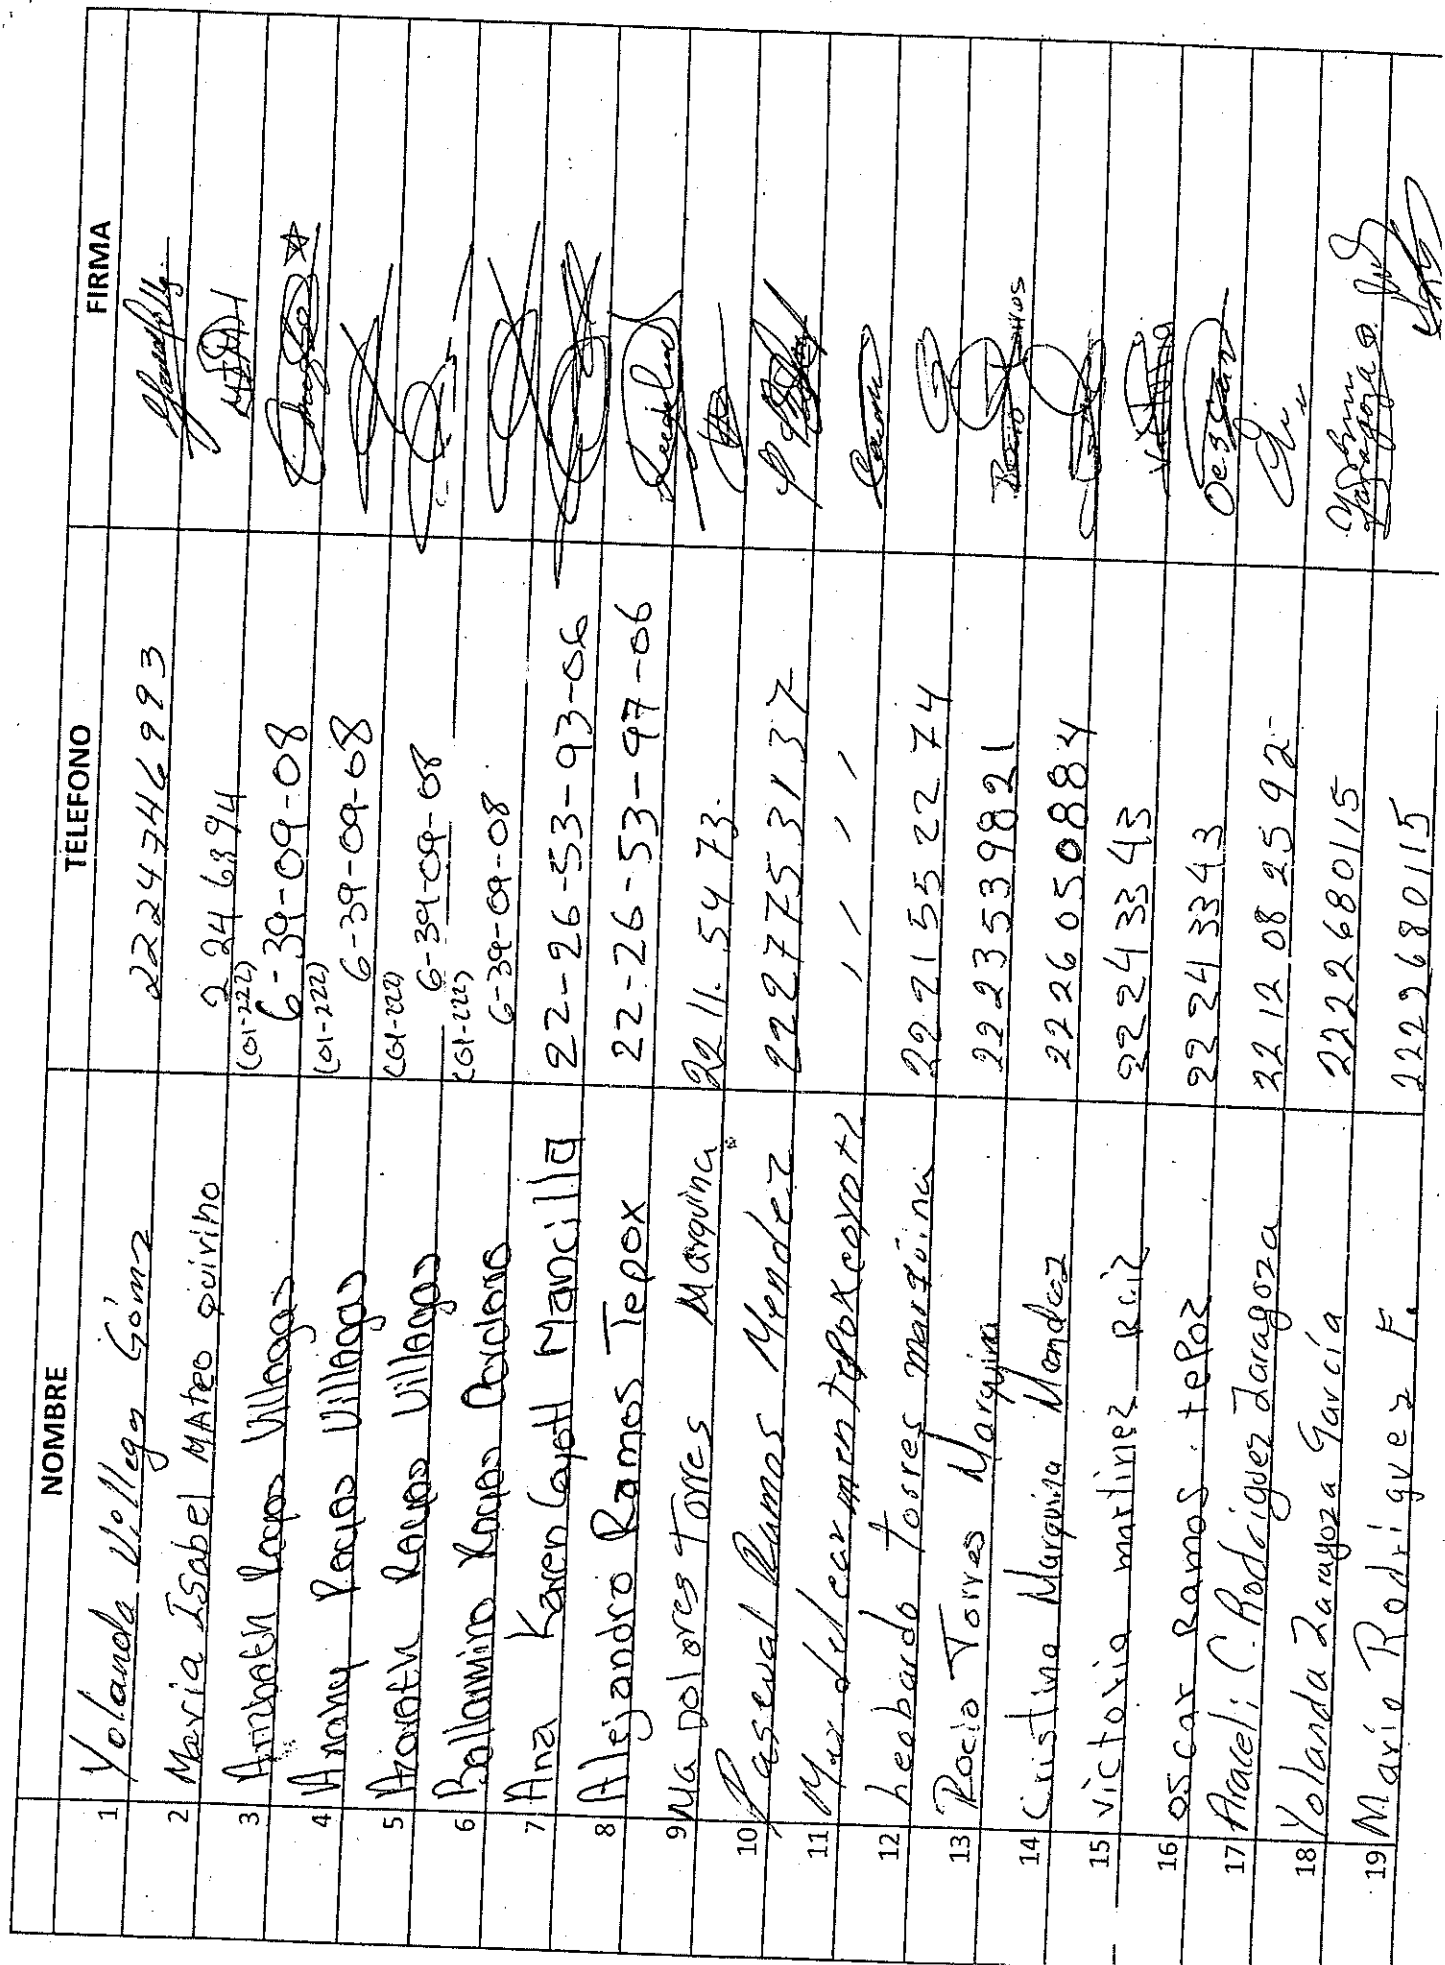 NOMBRE TELEFONO FIRMA
1 Yolanda Villegas Gómz 2224746993
2 María Isabel MAteo quirino 2 24 6394
3 Rayas Villegas (01-222) 6-39-09-08
4 Anahy Rayas Villegas (01-222) 6-39-09-08
5 Azareth Rayas Villegas (01-222) 6-39-09-08
6 Ballarmino Rayas (01-222) 6-39-09-08
7 Ana Karen Coyotl Mancilla 22-26-53-93-06
8 Alejandro Ramos Tepox 22-26-53-97-06
9 Ma Dolores Torres Marquina 22 11. 54 73.
10 Paseval Ramos Mendez 2227753137
11 Mar del carmen tepox coyotl , , , ,
12 Leobardo torres marquina 22 21 55 22 74
13 Rocio Torres Marquina 2223539821 Rocio Torres
14 Cristina Marquina Mendez 2226050884
15 victoria martinez Ruiz 22243343 Victoria
16 oscar Ramos tepoz 22243343 Oescar
17 Araceli C. Rodriguez Zaragoza 22 12 08 25 92
18 Yolanda Zaragoza García 2222680115 Zaragoza
19 Mario Rodríguez F. 2222680115